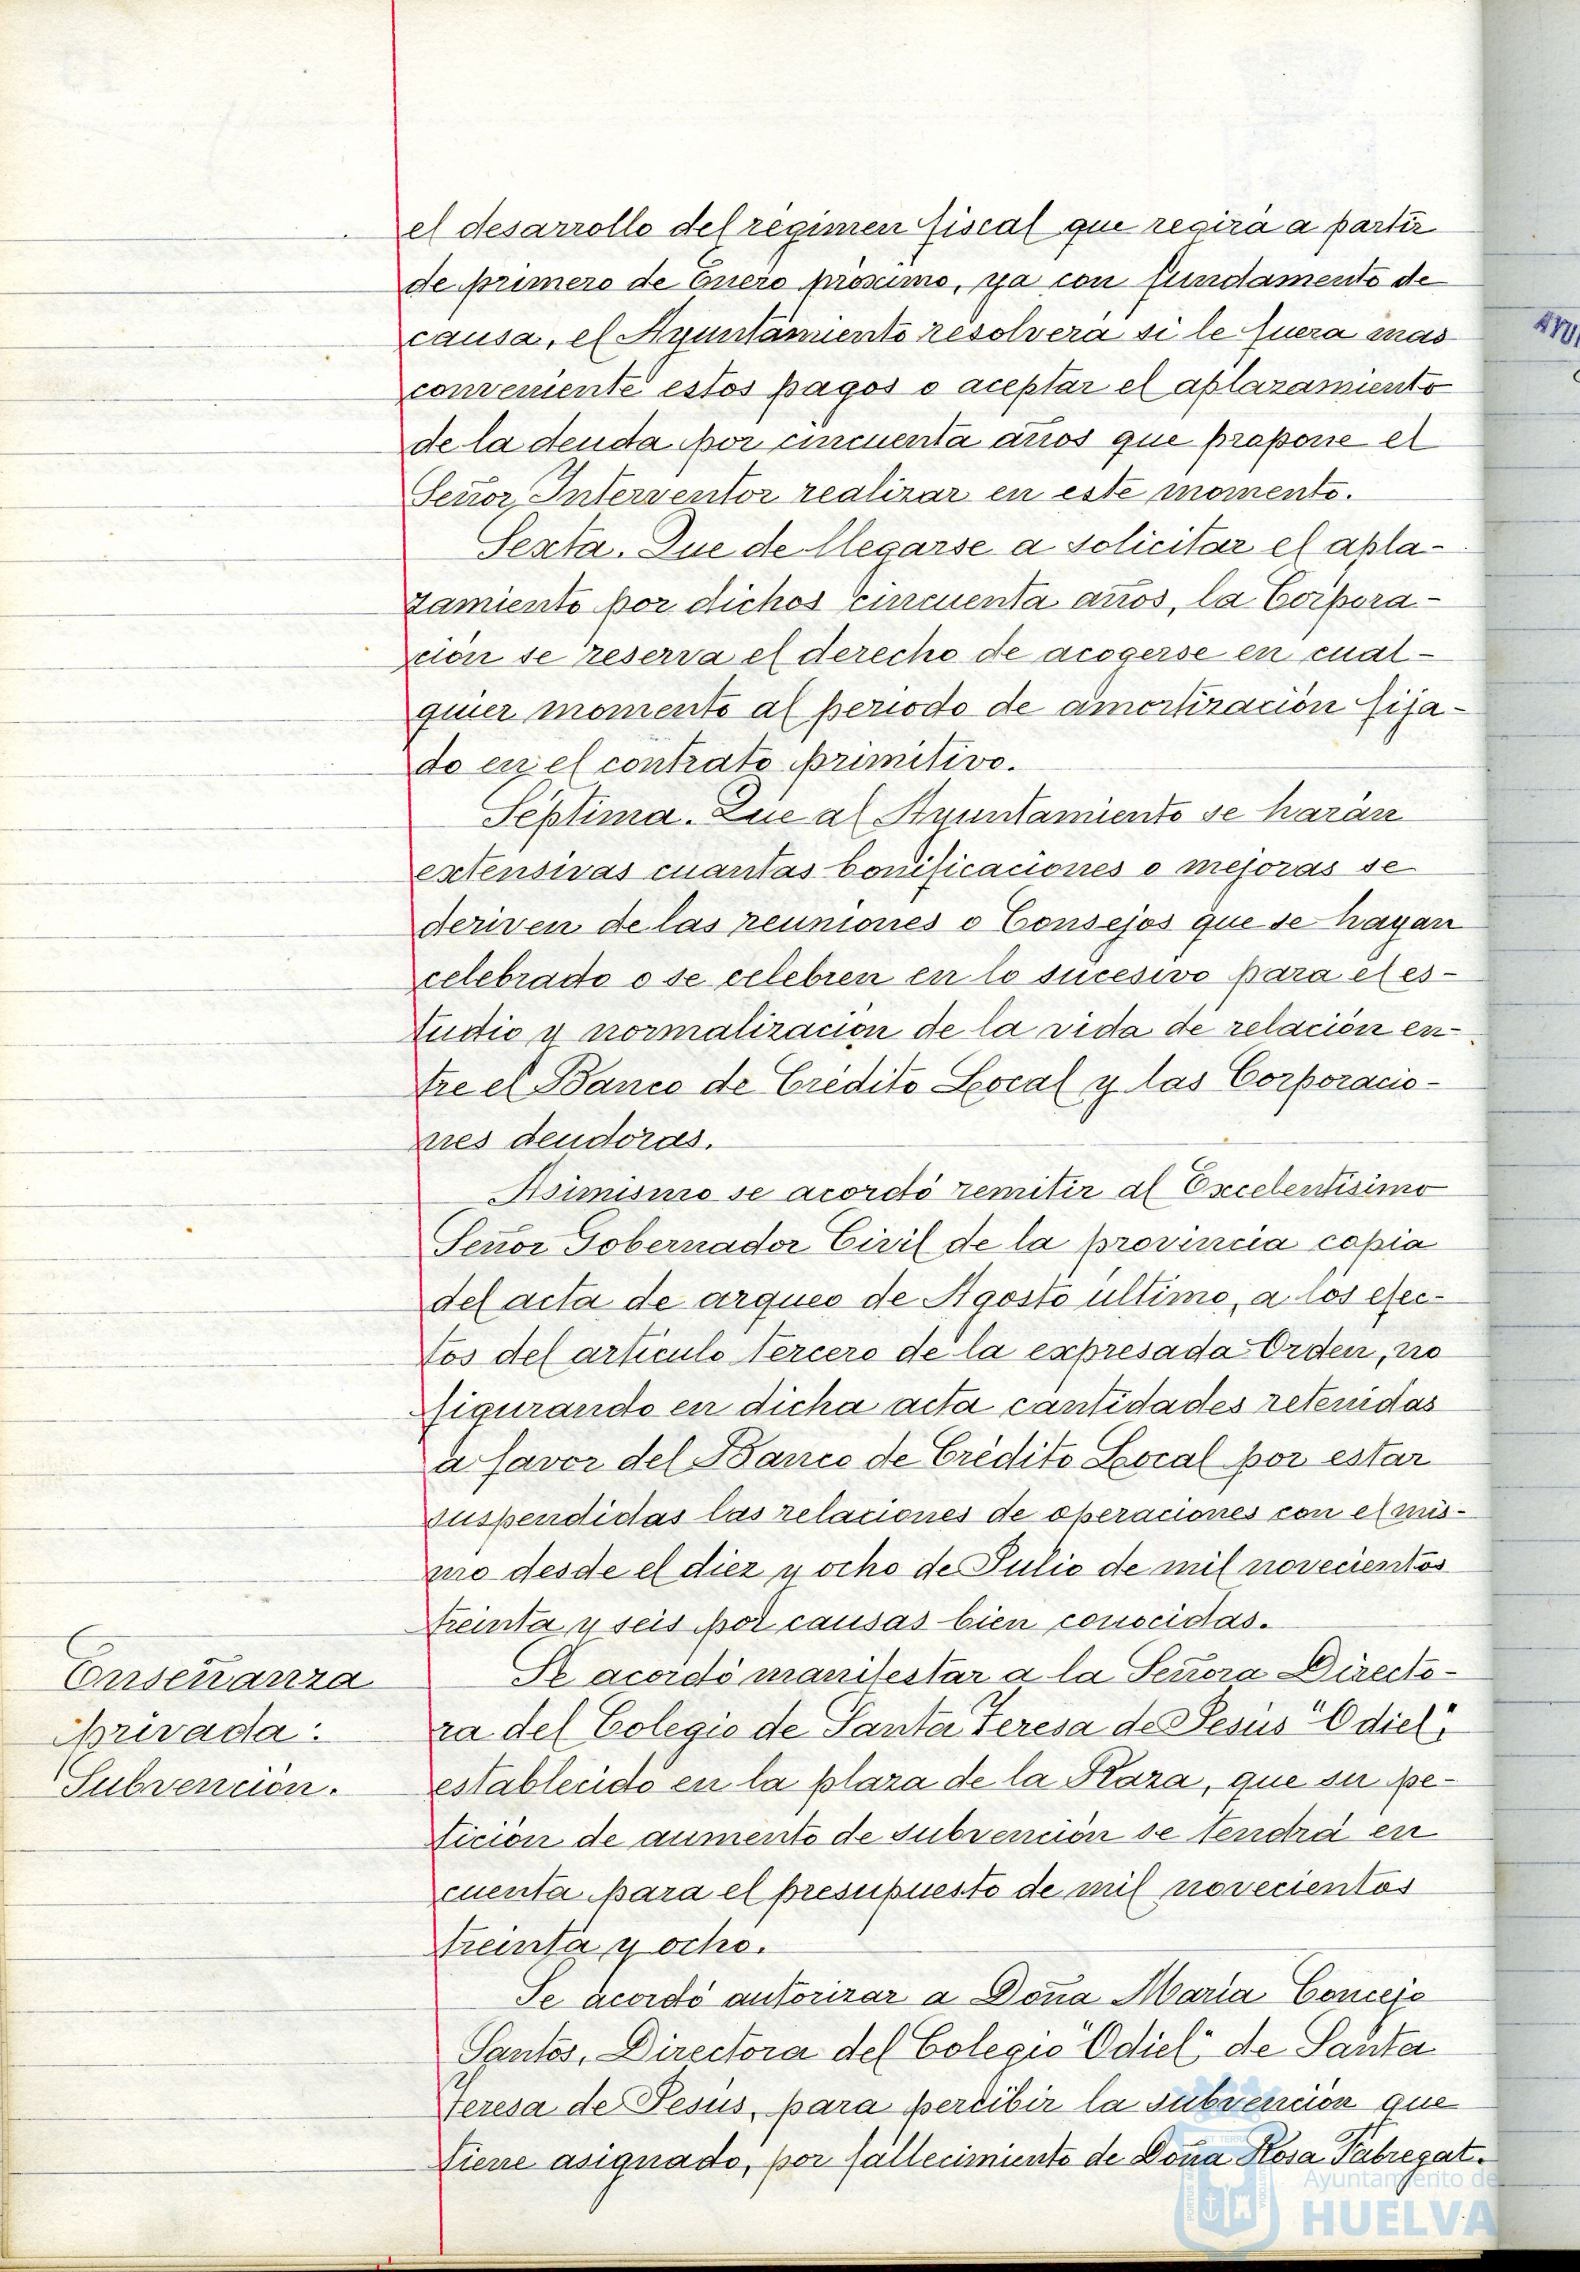 el desarrollo del régimen fiscal que regirá a partir
de primero de Enero próximo, ya con fundamento de
causa, el Ayuntamiento resolverá si le fuera mas
conveniente estos pagos o aceptar el aplazamiento
de la deuda por cincuenta años que propone el
Señor Interventor realizar en este momento.
Sexta. Que de llegarse a solicitar el apla-
zamiento por dichos cincuenta años, la Corpora-
ción se reserva el derecho de acogerse en cual-
quier momento al periodo de amortización fija-
do en el contrato primitivo.
Séptima. Que al Ayuntamiento se harán
extensivas cuantas bonificaciones o mejoras se
deriven de las reuniones o Consejos que se hayan
celebrado o se celebren en lo sucesivo para el es-
tudio y normalización de la vida de relación en-
tre el Banco de Crédito Local y las Corporacio-
nes deudoras.
Asimismo se acordó remitir al Excelentísimo
Señor Gobernador Civil de la provincia copia
del acta de arqueo de Agosto último, a los efec-
tos del artículo tercero de la expresada Orden, no
figurando en dicha acta cantidades retenidas
a favor del Banco de Crédito Local por estar
suspendidas las relaciones de operaciones con el mis-
mo desde el diez y ocho de Julio de mil novecientos
treinta y seis por causas bien conocidas.
Enseñanza
privada:
Subvención.
Se acordó manifestar a la Señora Directo-
ra del Colegio de Santa Teresa de Jesús "Odiel",
establecido en la plaza de la Plaza, que su pe-
tición de aumento de subvención se tendrá en
cuenta para el presupuesto de mil novecientos
treinta y ocho.
Se acordó autorizar a Doña María Concejo
Santos, Directora del Colegio "Odiel" de Santa
Teresa de Jesús, para percibir la subvención que
tiene asignado, por fallecimiento de Doña Rosa Fabregat.
Ayuntamiento de
HUELVA